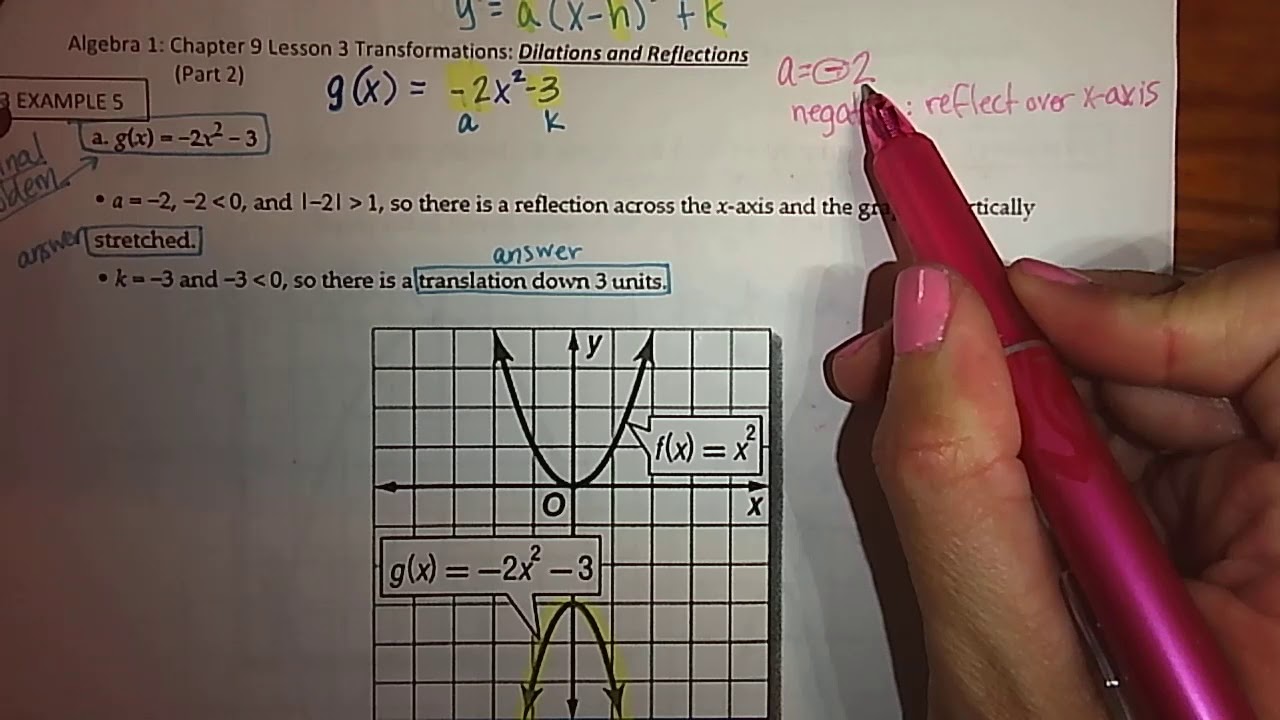 y = a(x-h)² + k
Algebra 1: Chapter 9 Lesson 3 Transformations: Dilations and Reflections
(Part 2)
g(x) = -2x²-3
a k
a=-2
: reflect over x-axis
EXAMPLE 5
a. g(x) = −2x² − 3
• a = −2, −2 < 0, and |−2| > 1, so there is a reflection across the x-axis and the
answer stretched.
answer
• k = −3 and −3 < 0, so there is a translation down 3 units.
y
f(x) = x²
O
x
g(x) = −2x² − 3